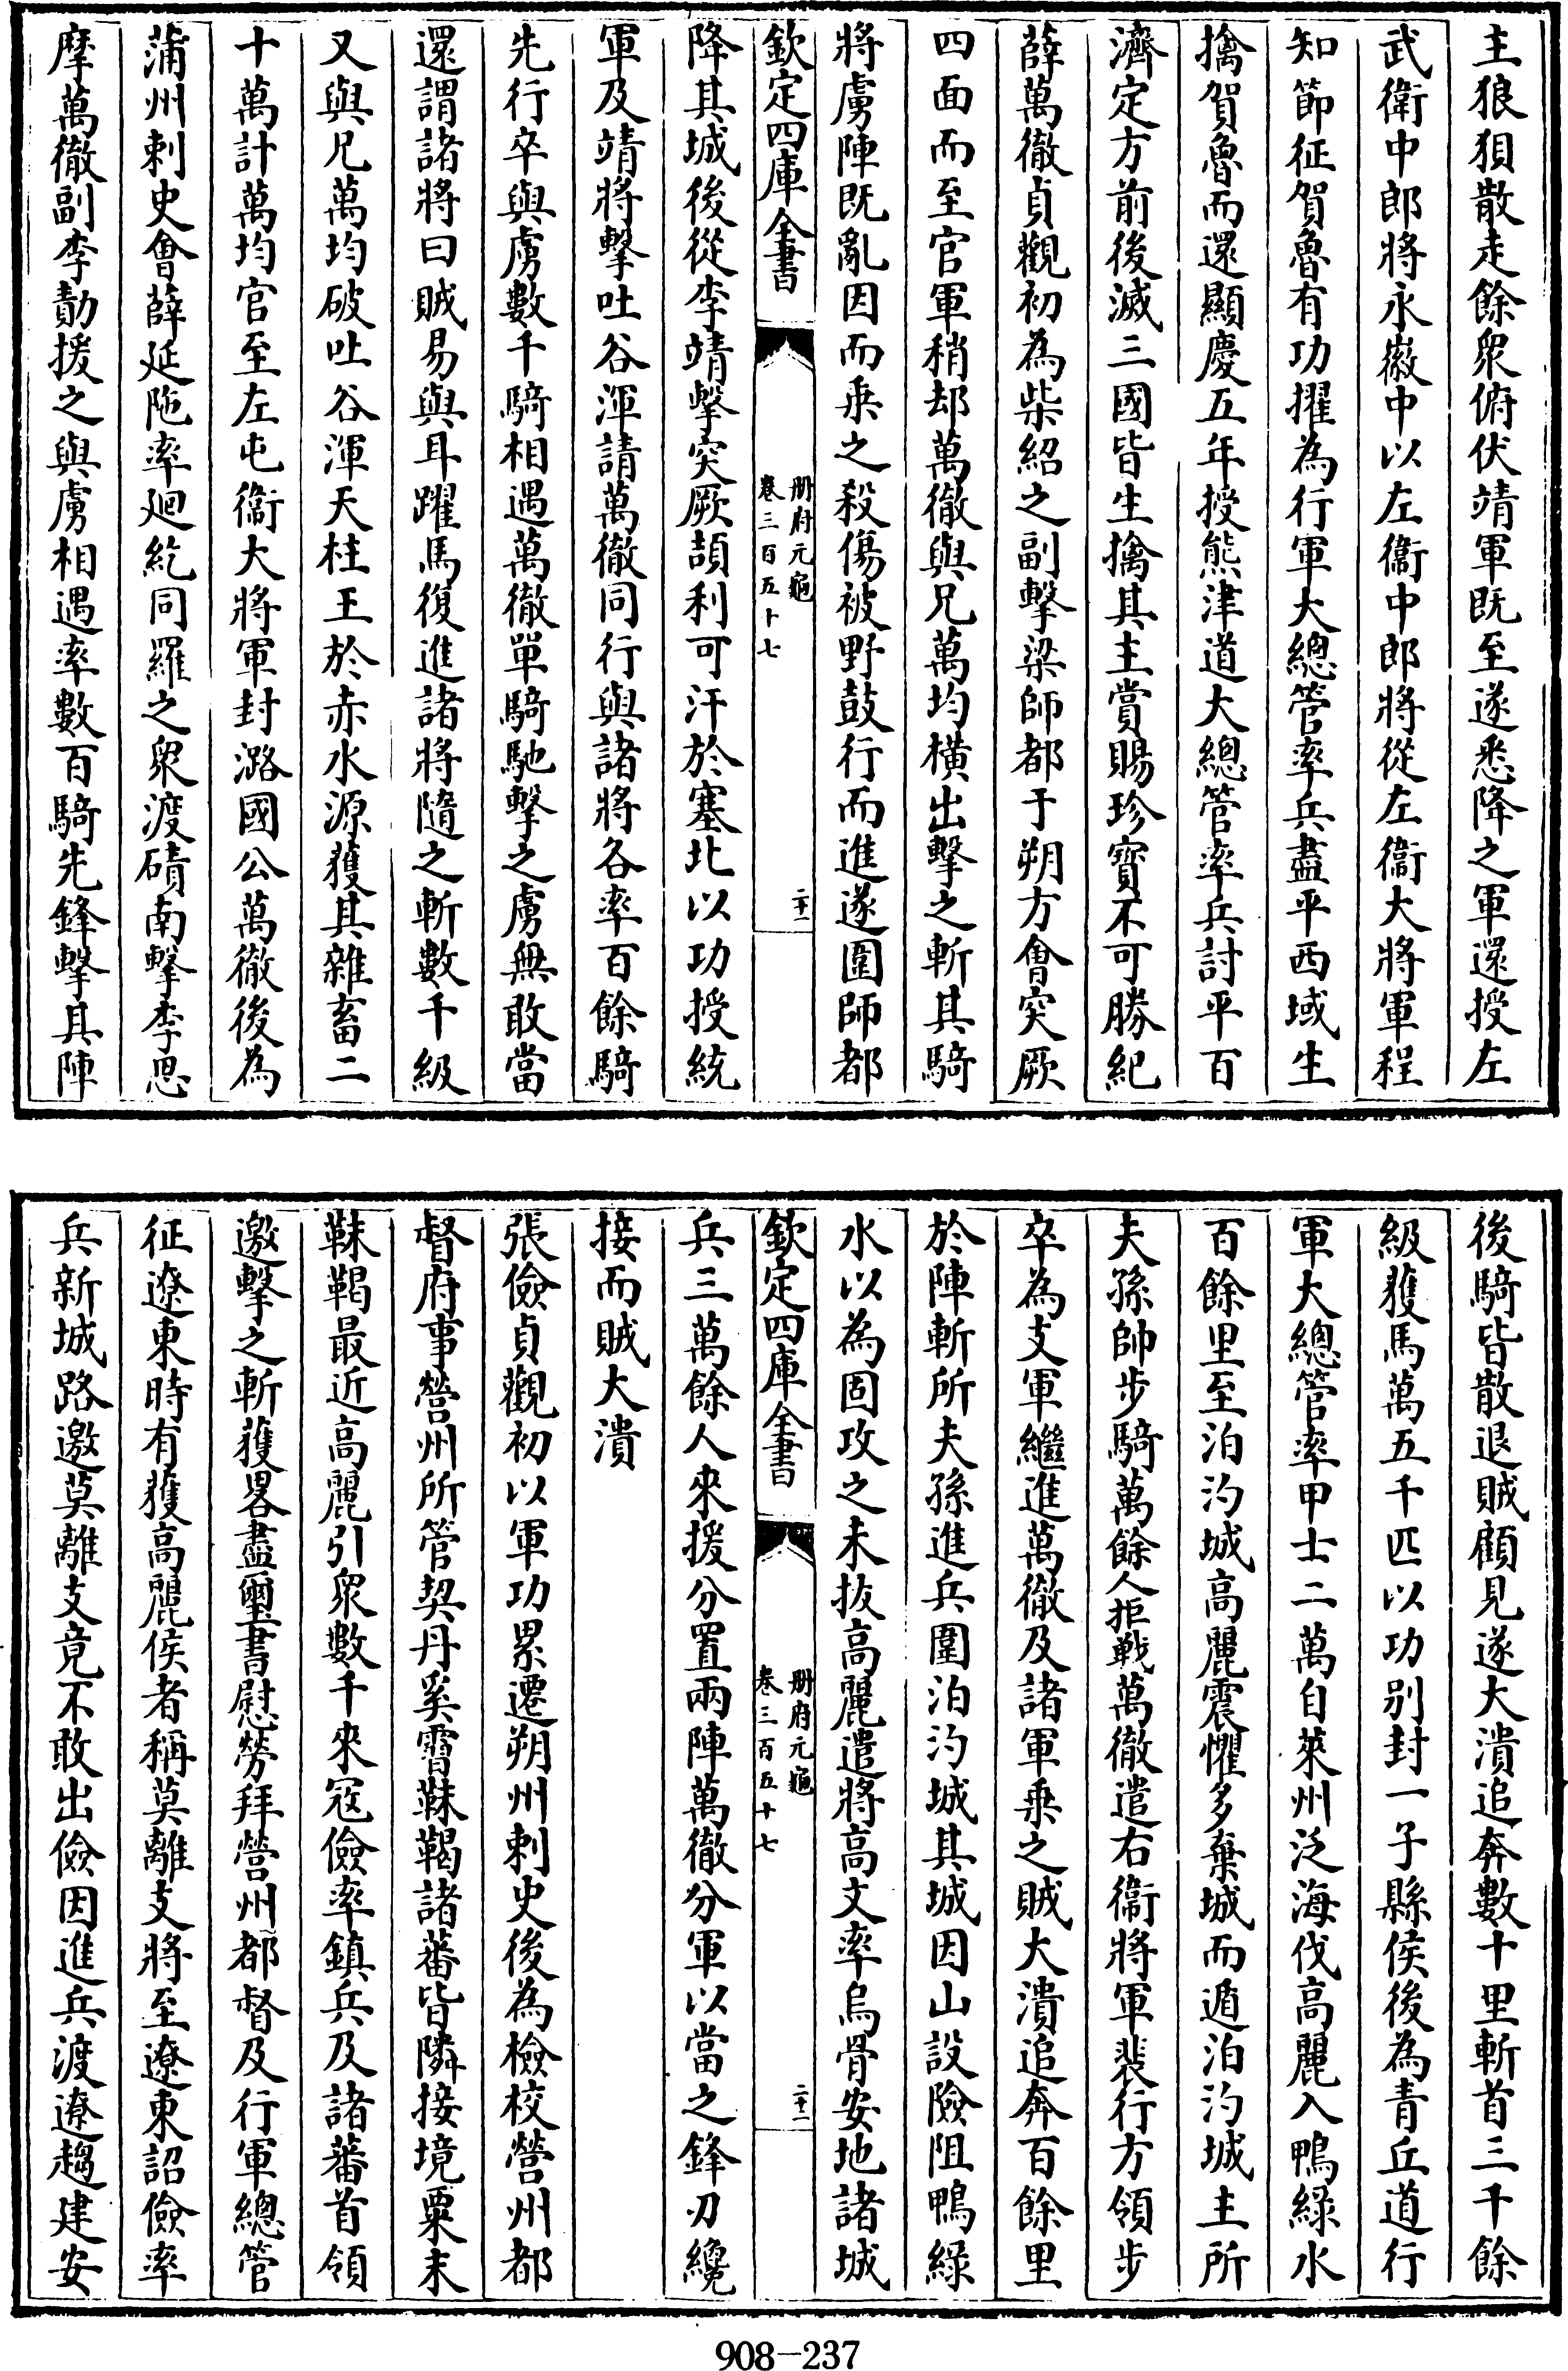 主狼狽散走餘衆俯伏靖軍既至遂悉降之軍還授左
武衛中郎將永徽中以左衞中郎將從左衞大將軍程
知節征賀魯有功擢為行軍大總管率兵盡平西域生
擒賀魯而還顯慶五年授熊津道大總管率兵討平百
濟定方前後滅三國皆生擒其主賞賜珍寳不可勝紀
薛萬徹貞觀初為柴紹之副擊梁師都于朔方會突厥
四面而至官軍稍却萬徹與兄萬均橫出擊之斬其騎
將虜陣既亂因而乘之殺傷被野鼓行而進遂圍師都
欽定四庫全書
册府元龜
卷三百五十七
二十一
降其城後從李靖擊突厥頡利可汗於塞北以功授統
軍及靖將擊吐谷渾請萬徹同行與諸將各率百餘騎
先行卒與虜數千騎相遇萬徹單騎馳擊之虜無敢當
還謂諸將曰賊易與耳躍馬復進諸將隨之斬數千級
又與兄萬均破吐谷渾天柱王於赤水源獲其雜畜二
十萬計萬均官至左屯衞大將軍封潞國公萬徹後為
蒲州刺史會薛延陁率廻紇同羅之衆渡磧南擊李思
摩萬徹副李勣援之與虜相遇率數百騎先鋒擊其陣
後騎皆散退賊顧見遂大潰追奔數十里斬首三千餘
級獲馬萬五千匹以功别封一子縣侯後為青丘道行
軍大總管率甲士二萬自萊州泛海伐高麗入鴨綠水
百餘里至泊汋城高麗震懼多棄城而遁泊汋城主所
夫孫帥步騎萬餘人拒戰萬徹遣右衞將軍裴行方領步
卒為支軍繼進萬徹及諸軍乘之賊大潰追奔百餘里
於陣斬所夫孫進兵圍泊汋城其城因山設險阻鴨綠
水以為固攻之未抜高麗遣將高文率烏骨安地諸城
欽定四庫全書
册府元龜
卷三百五十七
二十二
兵三萬餘人來援分置兩陣萬徹分軍以當之鋒刃纔
接而賊大潰
張儉貞觀初以軍功累遷朔州刺史後為檢校營州都
督府事營州所管契丹奚霫靺鞨諸蕃皆隣接境粟末
靺鞨最近高麗引衆數千來宼儉率鎮兵及諸蕃首領
邀擊之斬獲畧盡璽書慰勞拜營州都督及行軍總管
征遼東時有獲高麗侯者稱莫離支將至遼東詔儉率
兵新城路邀莫離支竟不敢出儉因進兵渡遼趨建安
908-237